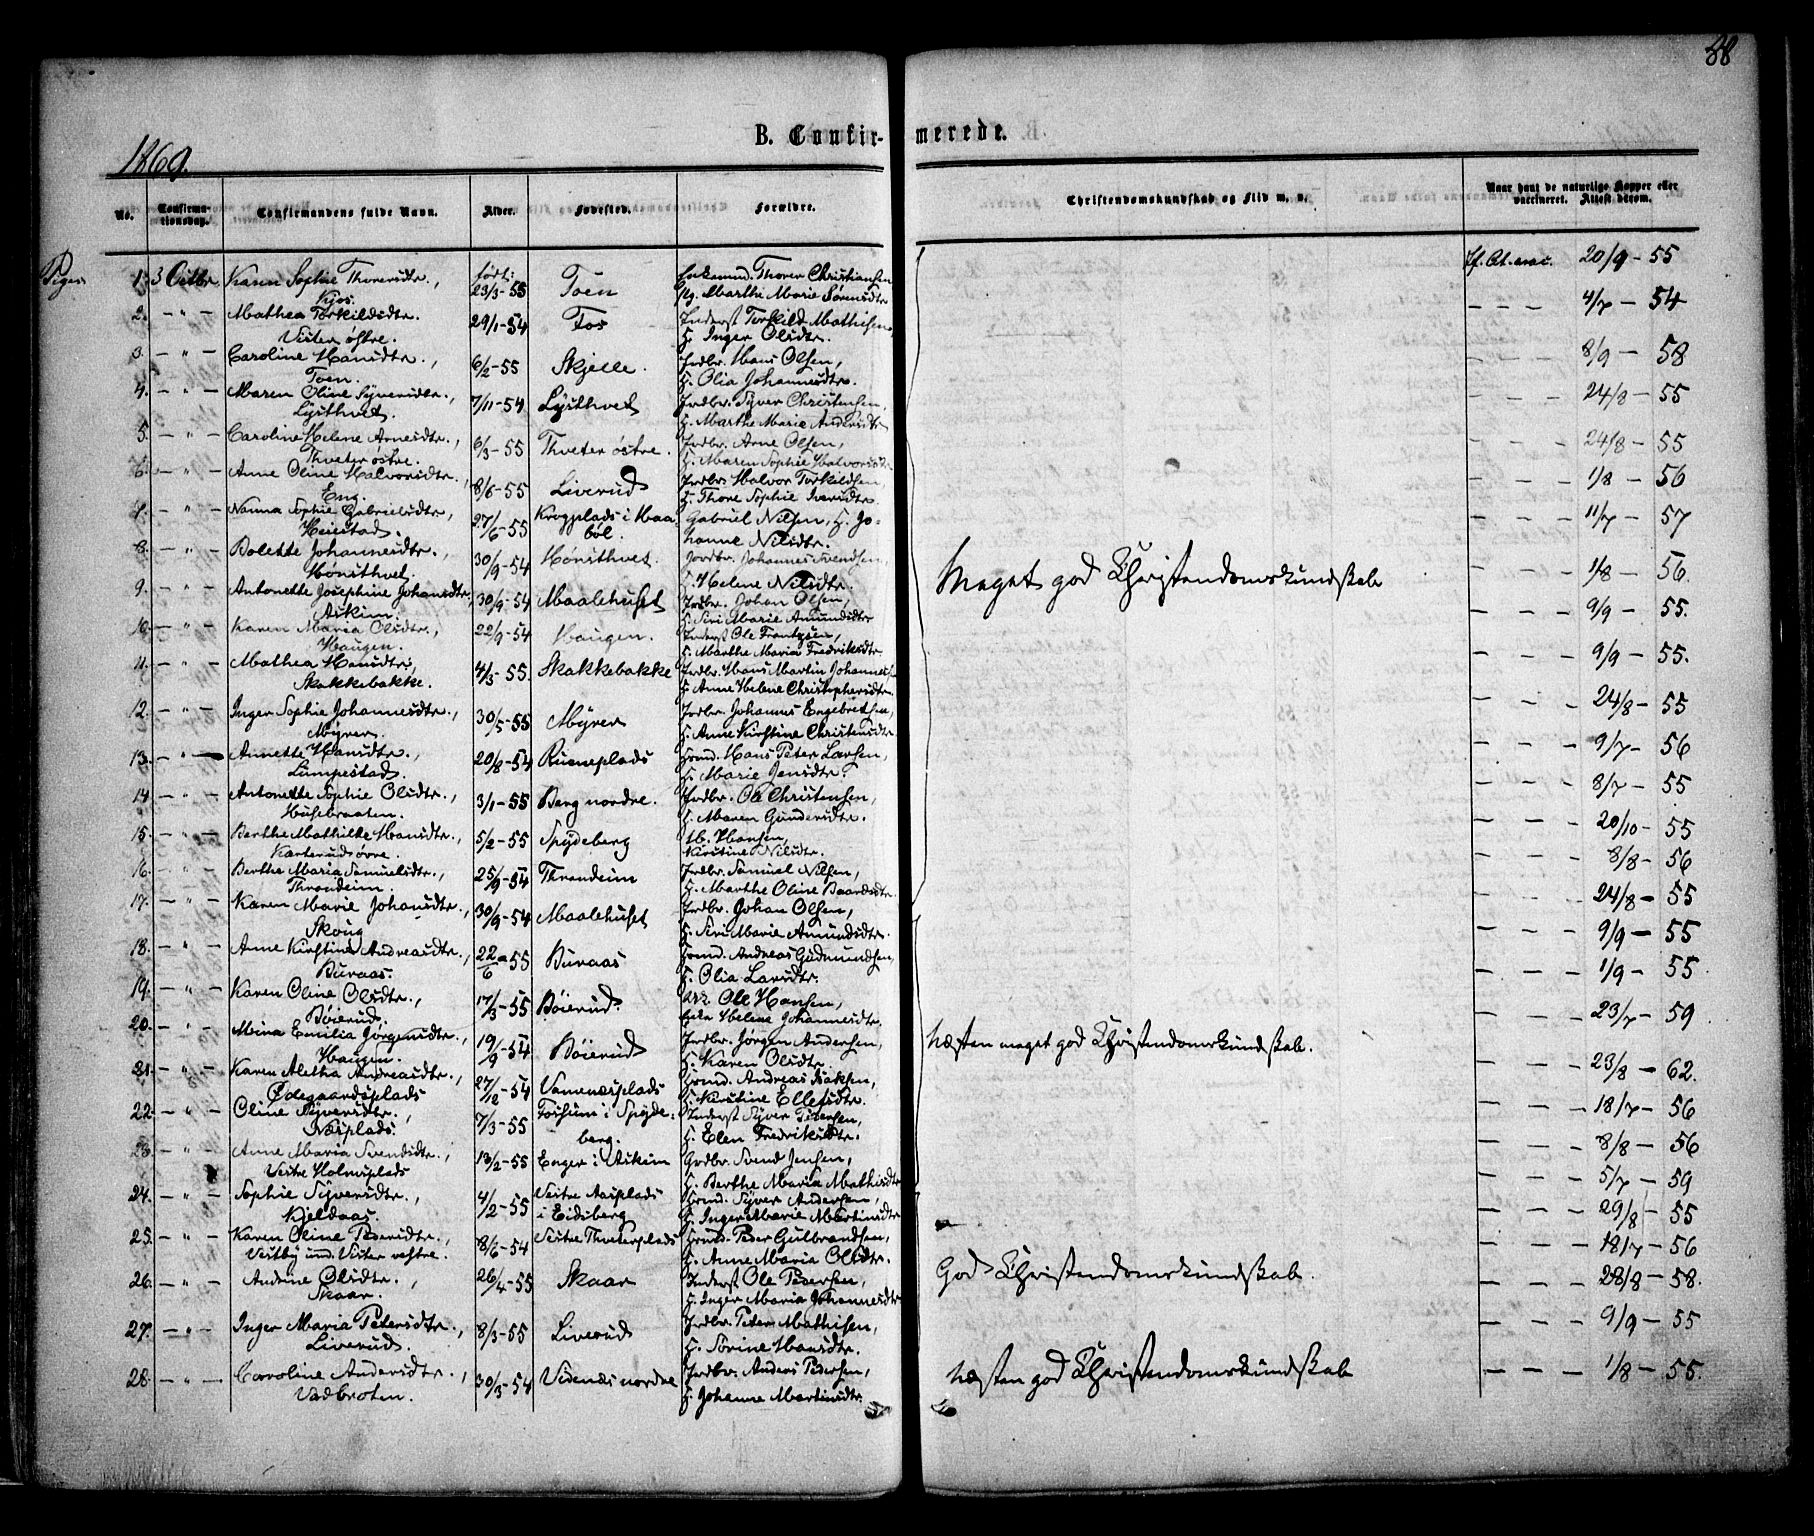 88
B. Confirmerede.
1869.
No. Confirmationsdag. Confirmandens fulde Navn. Alder. Fødested. Forældre. Christendomskundskab og Flid m. v. Naar havt de naturlige Kopper eller vaccineret. Attest derom.
Piger
1. 3 Octbr. Karen Sophie Thorersdtr., født: 23/3-55 Toen Thorer Christiansen 20/9-55
Kjos. Marthe Marie Sørensdtr
2. — " — Mathea Torkildsdtr. 29/1-54 Fos Inderst Torkild Mathisen, — — — 4/7-54
Vister østre. H. Inger Olsdtr.
3. — " — Caroline Hansdtr., 6/2-55 Skjelle. Jrdbr. Hans Olsen, — — — 8/9-58
Toen. H. Olia Johannesdtr.
4. — " — Maren Oline Syversdtr., 7/11-54 Lysthvet Jrdbr. Syver Christensen, — — — 24/8-55
Lysthvet. H. Marthe Marie Andersdtr
5. — " — Caroline Helene Arnesdtr., 6/3-55 Thveter østre. Jrdbr. Arne Olsen, — — — 24/8-55
Thveter østre. H. Maren Sophie Halvorsdtr
6. — " — Anne Oline Halvorsdtr., 8/6-55 Liverud Jrdbr. Halvor Torkildsen, — — — 1/8-56
Eng. H. Thore Sophie Iversdtr.
7. — " — Nanna Sophie Gabrielsdtr., 27/6-55 Krogplads i Haabøl. Gabriel Nilsen, H. Jo- — — — 11/7-57
Heiestad. hanne Nilsdtr.
8. — " — Bolette Johannesdtr., 30/9-54 Hønsthvet. Jordbr. Johannes Svendsen, Meget god Christendomskundskab — — — 1/8-56.
Hønsthvet. H. Helene Nilsdtr.
9. — " — Antonette Josephine Johansdtr, 30/9-54 Maalehuset Jrdbr. Johan Olsen, — — — 9/9-55.
Askim. H. Siri Marie Amundsdtr
10. — " — Karen Maria Olsdtr., 22/9-54 Haugen. Inderst Ole Frantzsen, — — — 9/9-55.
Haugen. H. Marthe Maria Fredriksdtr.
11. — " — Mathea Hansdtr, 4/3-55. Skakkebakke Jrdbr. Hans Martin Johannessen — — — 24/8-55
Skakkebakke. H. Anne Helene Christophersdtr.
12. — " — Inger Sophie Johannesdtr., 30/5-55 Myrer Jrdbr. Johannes Engebretsen, — — — 9/7-56
Myrer. H. Anne Kirstine Christensdtr
13. — " — Annette Hansdtr., 20/8-54 Hmd. Hans Peter Larsen, — — — 8/7-55
Lumpestad. H. Marie Jensdtr.
14. — " — Antonette Sophie Olsdtr., 3/1-55 Berg nordre. Jrdbr. Ole Christensen, — — — 20/10-55
Husebraaten. H. Maren Gundersdtr.
15. — " — Berthe Mathilde Hansdtr., 5/2-55 Spydeberg Hansen, — — — 8/8-56
Karterud øvre. Kirstine Nilsdtr.
16. — " — Berthe Maria Samuelsdtr., 25/9-54 Throndeim Jrdbr. Samuel Nilsen, — — — 24/8-55
Throndeim. H. Marthe Oline Baardsdtr
17. — " — Karen Marie Johansdtr., 30/9-54 Maalehuset Jrdbr. Johan Olsen, — — — 9/9-55
Skoug H. Siri Marie Amundsdtr.
18. — " — Anne Kirstine Andreasdtr., 22/6-55 Buraas Hmd. Andreas Gudmundsen, — — — 1/9-55
Buraas. H. Olia Larsdtr.
19. — " — Karen Oline Olsdtr., 17/3-55 Bøierud Ole Hansen, — — — 23/7-59
Bøierud. Helene Johannesdtr.
20. — " — Meina Emilia Jørgensdtr., 19/9-54 Bøierud Jrdbr. Jørgen Andersen, næsten meget god Christendomskundskab. — — — 23/8-62.
Haugen. H. Karen Olsdtr.
21. — " — Karen Aletha Andreasdtr., 27/12-54 Vammæsplads Hmd. Andreas Isaksen, — — — 18/7-56
Ødegaardsplads H. Kirstine Ellefsdtr.
22. — " — Oline Syversdtr., 7/3-55 Fossum i Spydeberg. Inderst Syver Petersen, — — — 8/8-56
Næsplads. H. Elen Fredriksdtr.
23. — " — Anne Maria Svendsdtr., 13/2-55 Enger i Askim Grdbr. Svend Jensen, — — — 5/7-59
Vestre Holmsplads H. Berthe Maria Mathisdtr
24. — " — Sophie Syversdtr., 4/2-55 Vestre Aasplads i Eidsberg Hmd. Syver Andersen, — — — 29/8-55
Kjeldaas. H. Inger Marie Martinsdtr
25. — " — Karen Oline Pedersdtr., 8/6-54 Vestre Thveterplads Hmd. Peder Gulbrandsen, — — — 18/7-56
Vestby und. Vister vestre. H. Anne Maria Olsdtr.
26. — " — Andrine Olsdtr., 26/4-55 Skaar Inderst Ole Pedersen, God Christendomskundskab. — — — 28/8-58.
Skaar. H. Inger Maria Johannesdtr
27. — " — Inger Maria Petersdtr., 8/3-55 Liverud Jrdbr. Peter Mathisen, — — — 9/9-55
Liverud. H. Sørine Hansdtr.
28. — " — Caroline Andersdtr., 30/3-54 Videnæs nordre Jrdbr. Anders Pedersen, næsten god Christendomskundskab — — — 1/8-55.
Vadbroten. H. Johanne Martinsdtr.